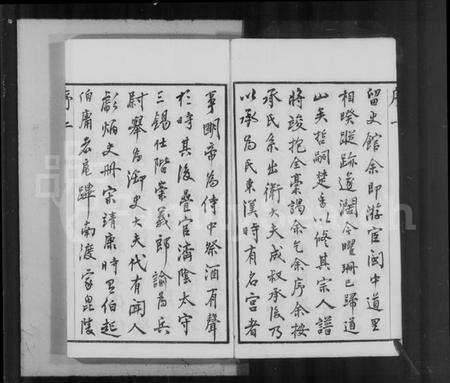 序一
留史館余即游宦閩中道里
相暌蹤跡遼濶今曜珊已歸道
山矣哲嗣楚青以修其宗人譜
將竣抱全稾謁余乞余序余按
承氏系出衛大夫成叔承後乃
以承為氏東漢時有名宮者
事明帝為侍中祭酒有聲
於時其後疊官濟陰太守
三錫仕階崇義郎諭為兵
尉舉為御史大夫代有聞人
彪炳史冊宋靖康時里伯起
伯庸宏扈蹕南渡家毘陵
序二